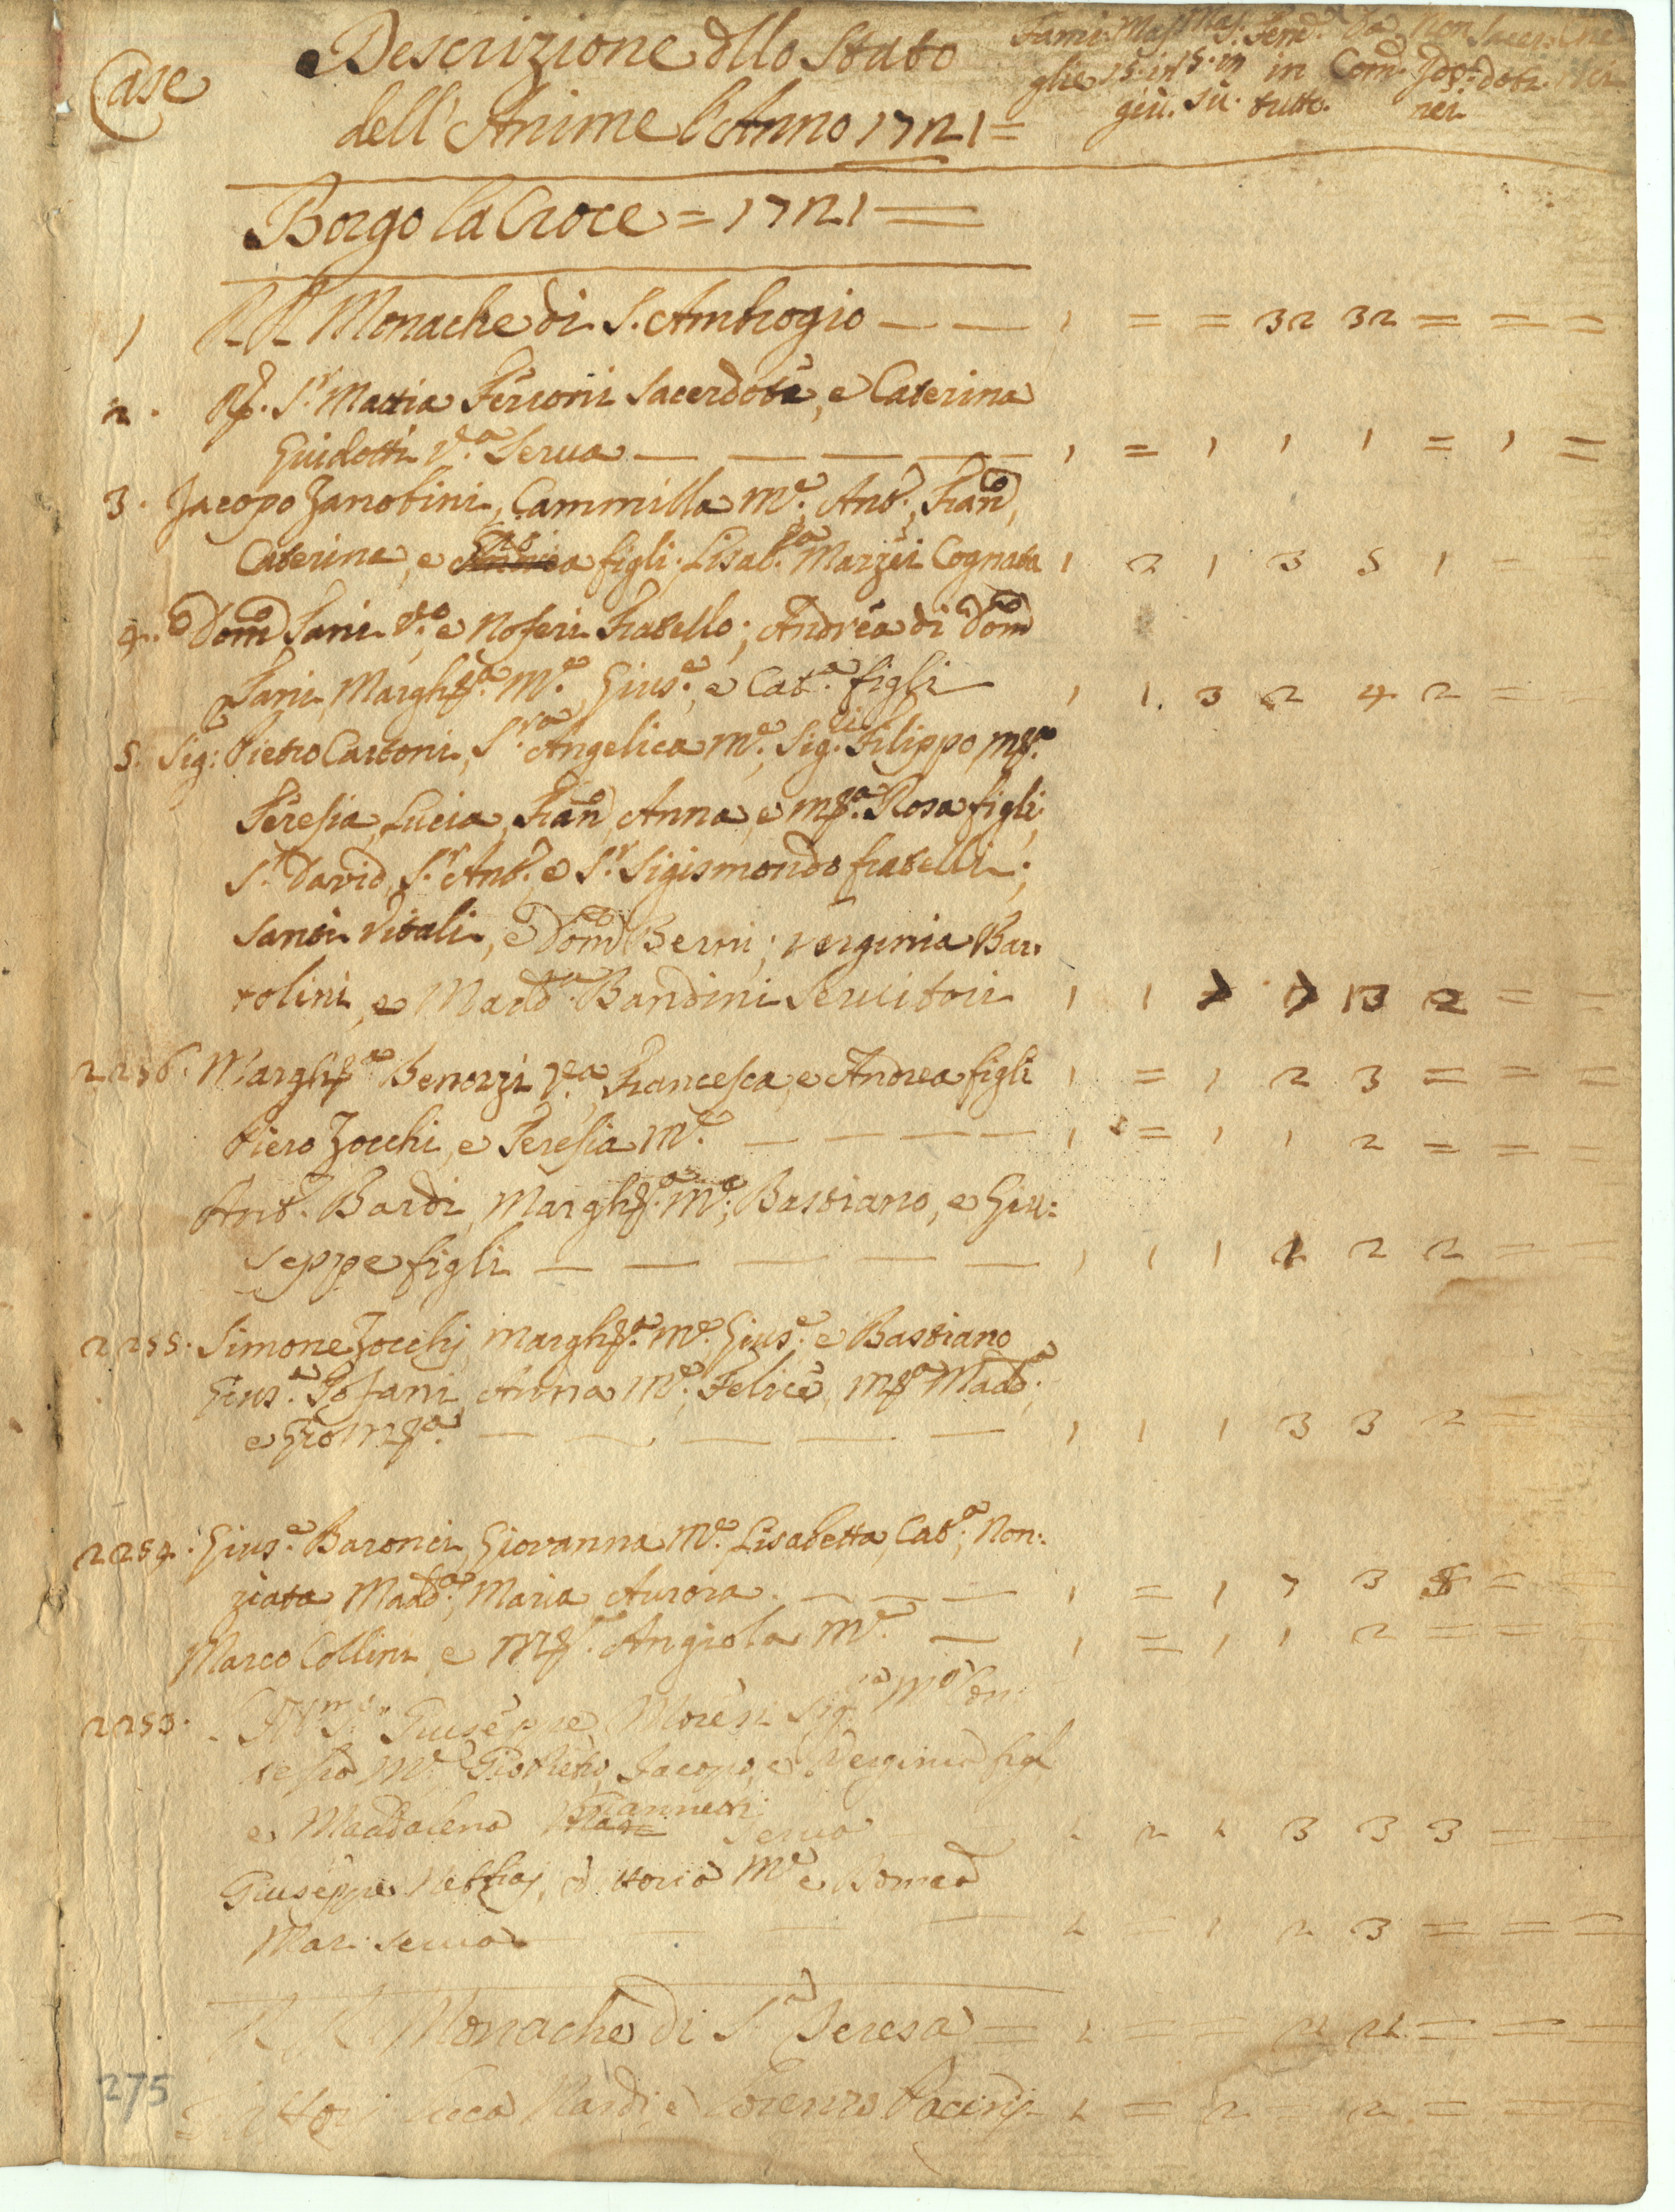 Case
Descrizione dllo Stato
dell' Anime l'Anno 1721 =
Fami: Mas. Mas. Fem. Da Non Sacer:
glie 15. in 15. in in Com. Ido= doti.
giù. sù. tutto. nei
Borgo la Croce = 1721 =
1 RR Monache di S. Ambrogio — — 1 = = 32 32 = = =
2. R. Sr. Mattia Ferroni Sacerdote, e Caterina
Guidotti Va. Serua — — — — 1 = 1 1 1 = 1 =
3. Jacopo Zanobini, Cammilla Me., Ant., Frano,
Caterina, e figli. Lisab.ta Marzii Cognata 1 2 1 3 5 1 = =
4. Domo Fani Vo. e Noferi Fratello; Andrea di Domo
Fani, Marghta. Me. Giuse., e Cata. figli 1 1. 3 2 4 2 = =
5. Sig: Pietro Cartoni, Sra. Angelica Me., Sig.ri Filippo,
Teresia, Lucia, Frano, Anna, e Ma. Rosa figli,
Sr. David, Sr. Ant. e Sr. Sigismondo fratelli;
Santi Vitali, e Domo Berni; Verginia Bar=
tolini, e Madda. Bandini Seruitori 1 1 7 7 13 2 = =
2256. Marghta Benozzi Va. Francesca, e Andrea figli 1 = 1 2 3 = = =
Piero Zocchi, e Teresia Me. — — — — 1 = 1 1 2 = = =
Ant. Bardi, Marghta. Me., Bastiano, e Giu=
seppe figli — — — — — 1 1 1 1 2 2 = =
2255. Simone Zocchj Marghta. Me. Giuse. e Bastiano
Giuse. Fani, Anna Me., Felice, Ma Madda.
e Gio Ma. — — — — — 1 1 1 3 3 2 = =
2254. Giuse. Baronci, Giovanna Me. Lisabetta, Cata., Non=
ziata Madda., Maria Aurora. — — — 1 = 1 7 3 5 = =
Marco Collini, e Ma. Angiola Me. — 1 = 1 1 2 = = =
2253. Giuseppe Sig.ra
Me. Jacopo, e Verginia figl
e Maddalena Giannetti Serua 1 2 1 3 3 3 = =
Giuseppe Me e
Mar. serua — — — 1 = 1 2 3 = = =
R. R. Monache di Sa Teresa = 1 = = 21 21 = = =
Lorenzo Pacinj 1 = 2 = 2 = = =
275